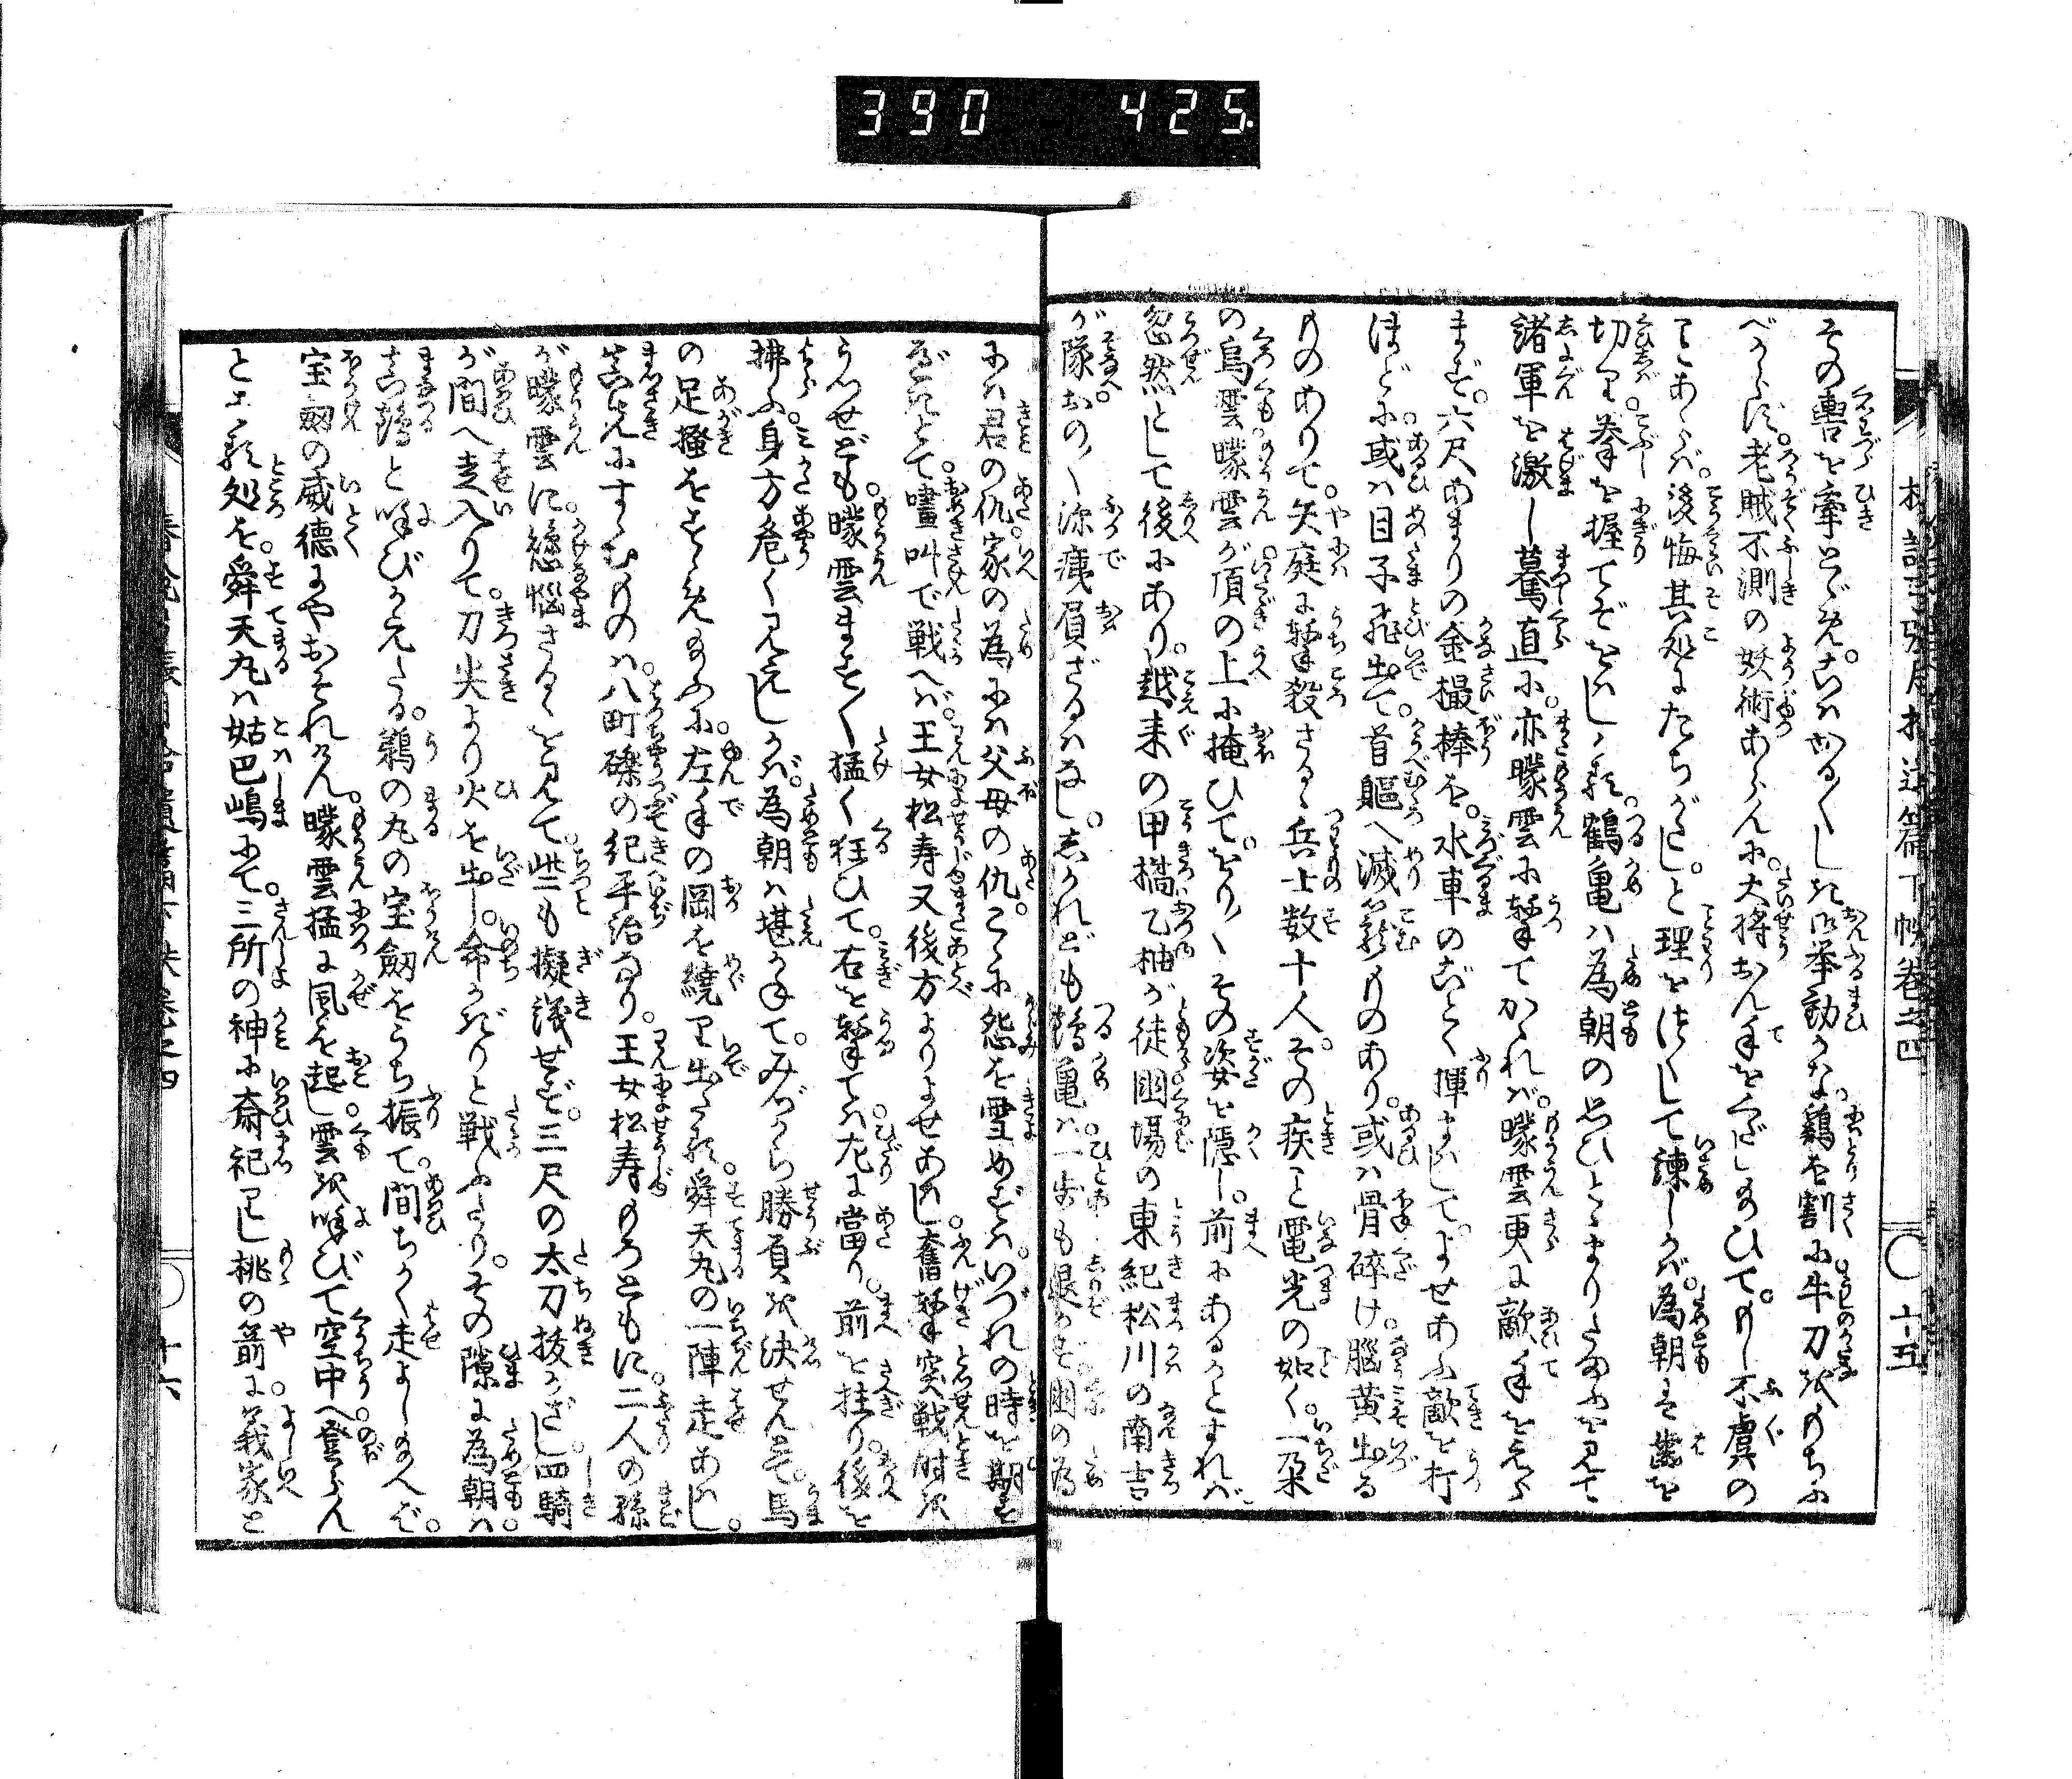 390 425
その轡を牽とゞめ。こはかる〴〵し死御挙動かな。鶏を割に牛刀何のちふ
べからず。老賊不測の妖術あらんに。大将おん手をくだし給ひて。もし不虞の
ことあらば。後悔其処にたちがたし。と理を尽して諫しかば。為朝は歯を
切り拳を握てぞをはしける。鶴亀は為朝の思ひとゞまりたまふを見て
諸軍を激し驀直に。亦曚雲に撃てかゝれば。曚雲更に敵手をえら
まず。六尺あまりの金撮棒を。水車のごとく揮まはして。よせあふ敵を打
ほどに。或は目子飛出て。首軀へ滅籠ものあり。或は骨砕け。脳黄出る
ものありて。矢庭に撃殺さるゝ兵士数十人。その疾こと電光の如く。一朶
の烏雲曚雲が頂の上に掩ひて。をり〳〵その姿を隠し。前にあるかとすれば
忽然として後にあり。越来の甲橘乙柚が徒。囲場の東紀松川の南吉
が隊おの〳〵深痍負ざるはなし。しかれども鶴亀は一歩も退かず。囲の為
には君の仇。家の為には父母の仇。こゝに怨を雪めずは。いづれの時を期す
べきとて。嚍叫で戦へば。王女松寿又後方よりよせあはし。奮撃突戦時を
うつせども。曚雲ます〳〵猛く狂ひて。右を撃ては左に當り。前を拄り後を
拂ふ。身方危く見えしかば。為朝は堪かねて。みづから勝負を決せんとて。馬
の足掻をすゝめ給ふに。左手の岡を繞り出たる。舜天丸の一陣走あはし。
真先にすゝむものは。八町礫の紀平治なり。王女松寿もろともに。二人の孫
が曚雲に。懸悩さるゝを見て。些も擬議せず。三尺の太刀抜かざし。四騎
が間へ走入りて。刀尖より火を出し。命かぎりと戦ふたり。その隙に為朝は。
真鶴と呼びかえたる。鵜の丸の宝劔をうち振て。間ちかく走よし給へば。
宝劔の威徳にやおそれけん。曚雲猛に風を起し雲を呼びて空中へ登らん
とする処を。舜天丸は姑巴嶋にて。三所の神に斎祀りし桃の箭に。義家と